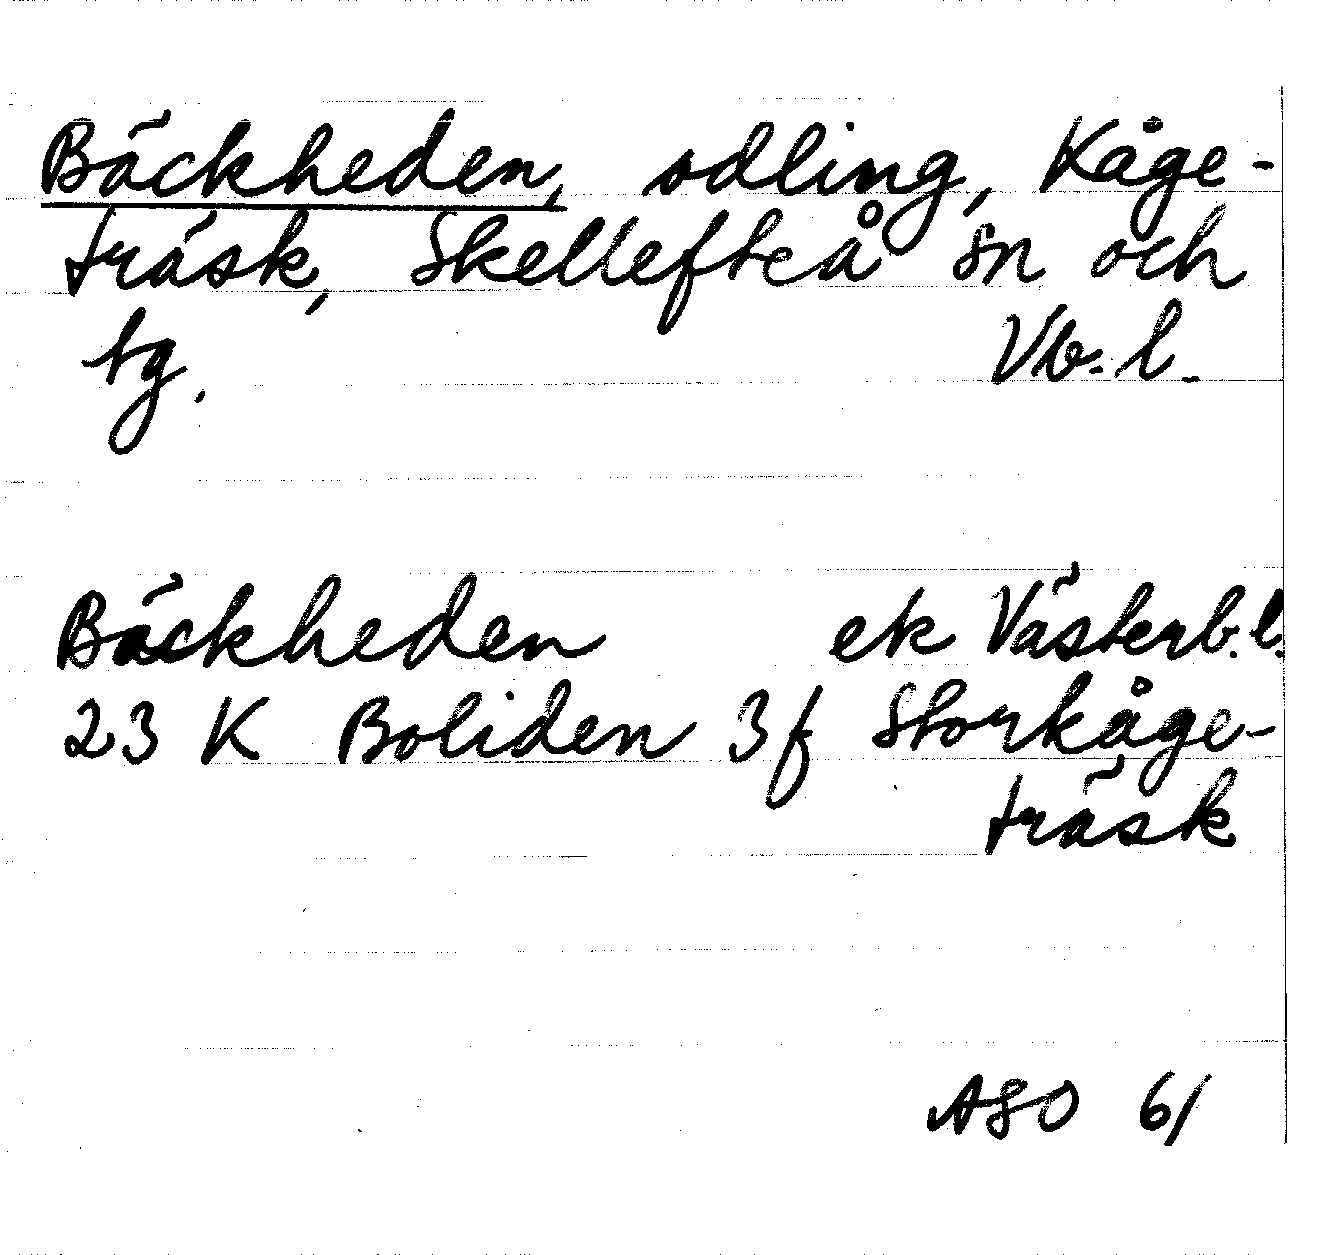 Bäckheden, odling, Kåge-
träsk, Skellefteå sn och
tg. Vb. l.
Bäckheden ek Västerb. l.
23 K Boliden 3f Storkåge-
träsk
ASO 61